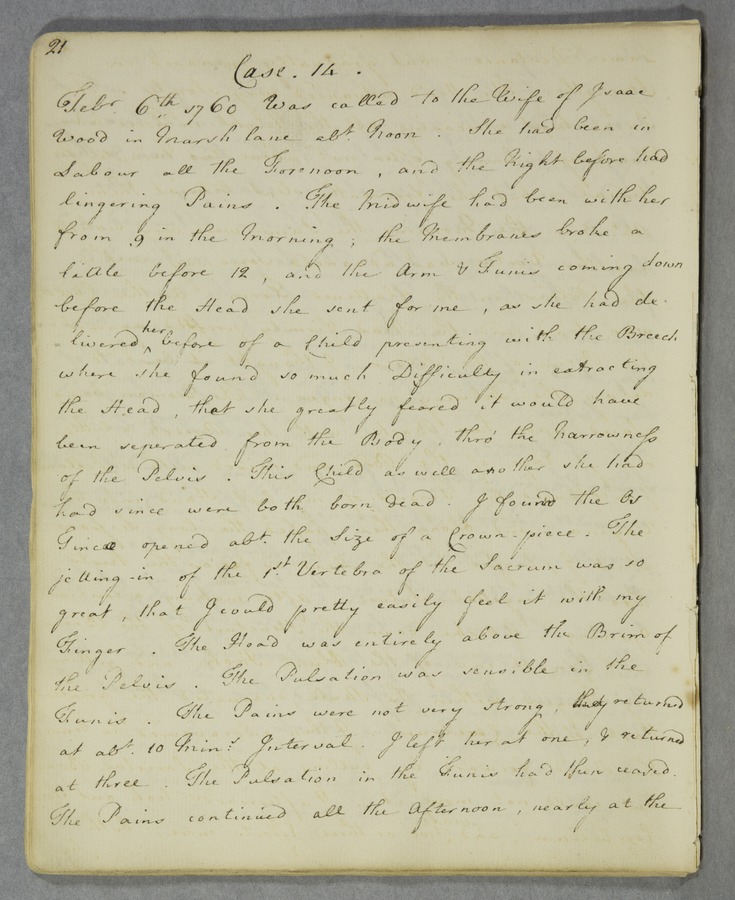 21
Case. 14.
Febr. 6th 1760 Was called to the Wife of Isaac
Wood in Marsh lane abt. Noon. She had been in
Labour all the Forenoon, and the Night before had
lingering Pains. The Midwife had been with her
from 9 in the Morning; the Membranes broke a
little before 12, and the Arm & Funis coming down
before the Head she sent for me, as she had de-
livered her before of a Child presenting with the Breech
where she found so much Difficulty in extracting
the Head, that she greatly feared it would have
been seperated from the Body, thro' the Narrowness
of the Pelvis. This Child as well another she had
had since were both born dead. I found the Os
Tincæ opened abt. the Size of a Crown-piece. The
jetting-in of the 1st. Vertebra of the Sacrum was so
great, that I could pretty easily feel it with my
Finger. The Head was entirely above the Brim of
the Pelvis. The Pulsation was sensible in the
Funis. The Pains were not very strong, they returned
at abt. 10 Mins. Interval. I left her at one, & returned
at three. The Pulsation in the Funis had then ceased.
The Pains continued all the Afternoon, nearly at the